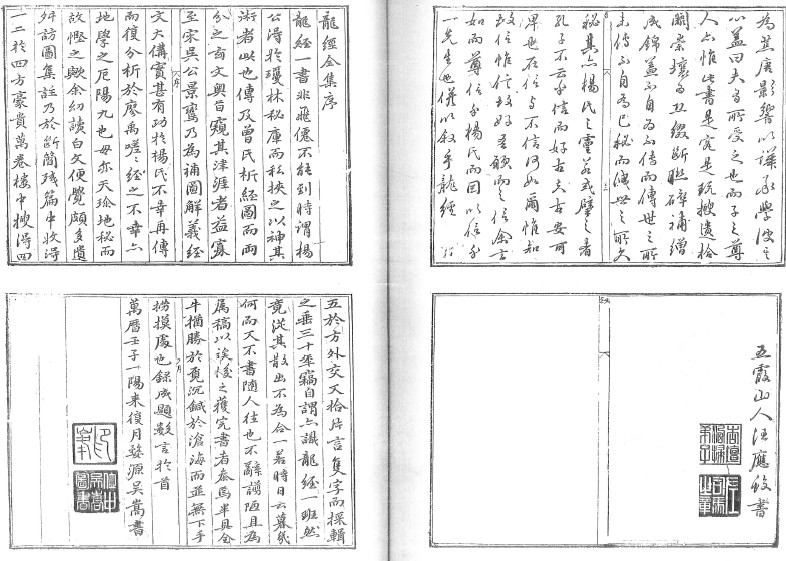 為其廣影響以誤承學沒之
心蓋曰夫有所受之也而子之尊
人亦惟此書是究是玩搜遺拾
闕崇壞為丑綴斷聯碎補繒
成錦蓋不自為不傳而傳世之所
未傳不自為己秘而洩世之所久
秘其亦楊氏之靈若或譬之者
孔子不云乎信而好古夫古安可
畀也在信與不信何如爾惟知
故信惟信故好吾願而之信余言
如而尊信乎楊氏而因以信乎
一先生也僕以敘乎龍經
五霞山人汪應銓書
龍經全集序
龍經一書非飛僊不能到時謂楊
公得於瓊林秘庫而私挾之以神其
術者此也傳及曾氏析經圖而兩
分之奇文奧旨窺其津涯者益寡
至宋吳公景鸞乃為補圖解義經
文大備寔甚有功於楊氏不幸再傳
而復分析於廖禹嗟嗟經之不幸亦
地學之厄陽九也毋亦天珍地秘而
故慳之歟余幼讀白文便覺頗多遺
舛訪圖集註乃於斷簡殘篇中收得
一二於四方豪貴萬卷樓中搜得四
五於方外交又拾片言隻字而採輯
之垂三十年竊自謂亦識龍經一班然
竟從其散出不為合一若時日云暮幾
何而又不書隨人往也不辭譾陋且為
属稿以俟後之獲完書者參焉半具全
牛猶勝於覓沉鍼於滄海而並無下手
撈摸處也錄成題數言於首
萬曆壬子一陽來復月婺源吳嵩書